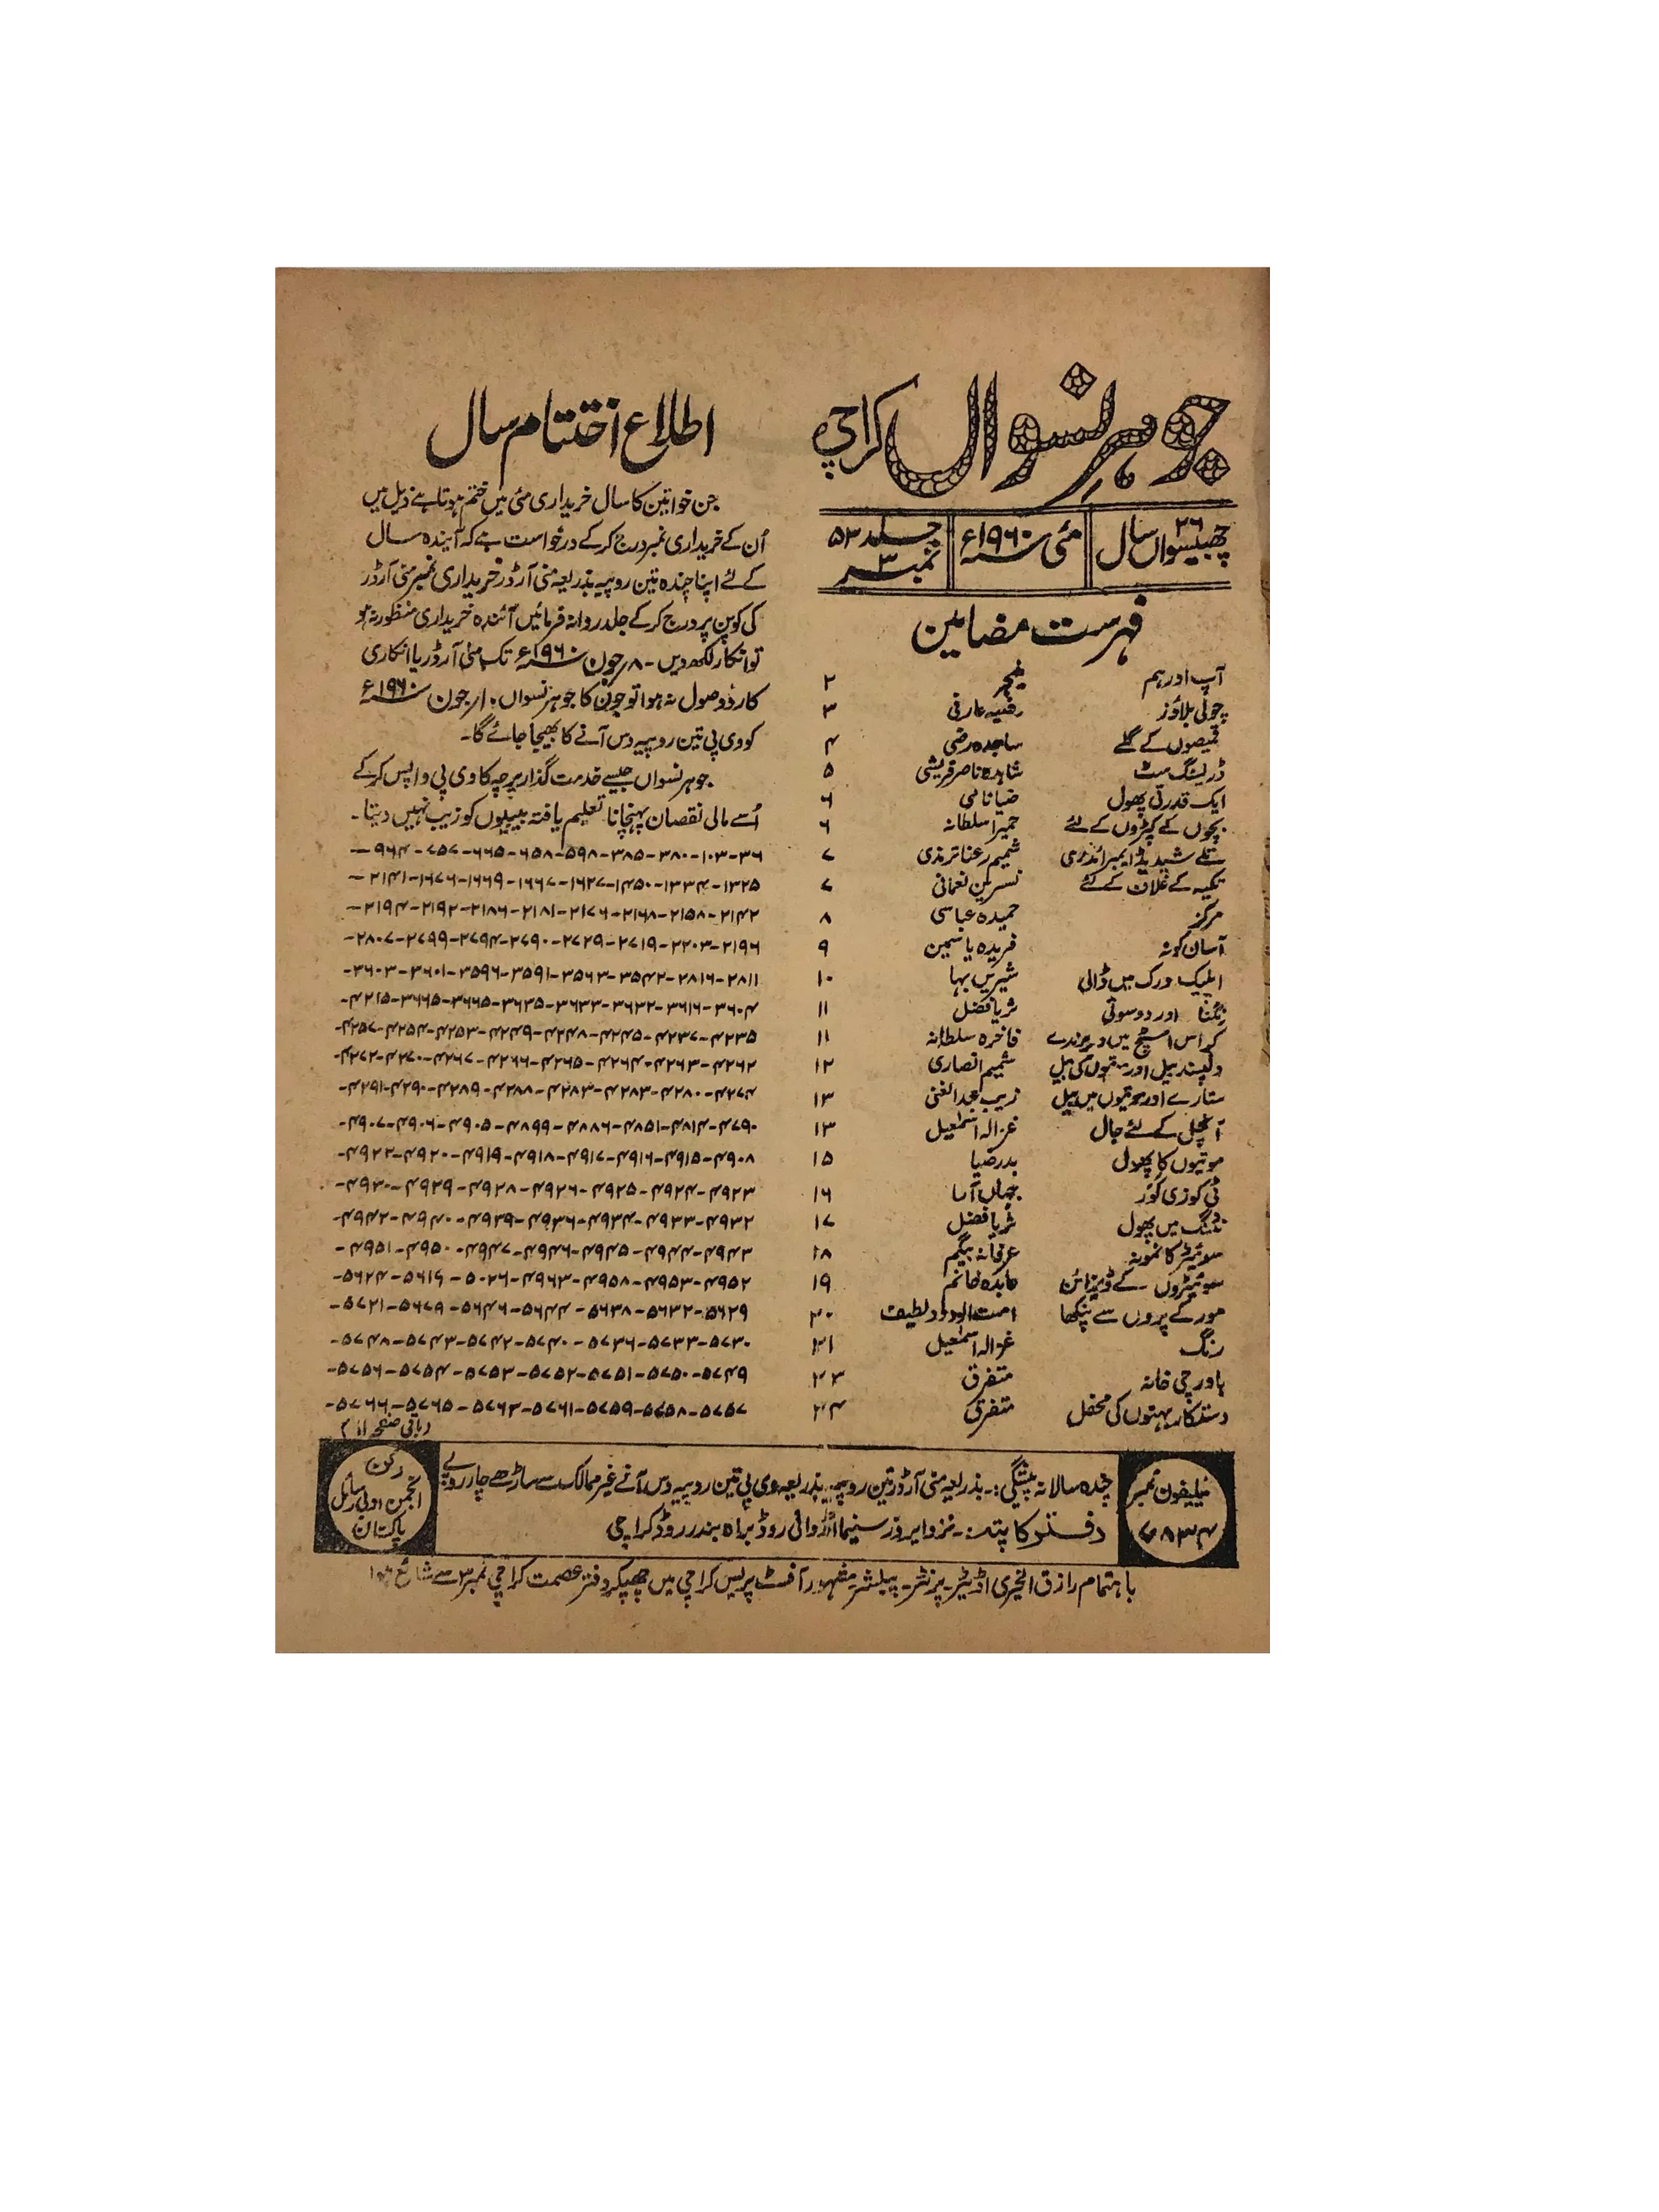 جوہر نسواں کراچی
چھبیسواں ۲۶ سال
مئی سنہ ۱۹۶۰ء
جلد ۵۲
نمبر ۳
فہرست مضامین
آپ اور ہم منیجر ۲
چولی بلاؤز رضیہ عارفی ۳
قمیصوں کے گلے ساجدہ رضی ۴
ڈریسنگ سٹ شاہدہ ناصر قریشی ۵
ایک قدرتی پھول ضیا نامی ۶
بچوں کے کپڑوں کے لئے حمیرا سلطانہ ۶
شیڈیڈ ایمبرائڈری شمیم رعنا ترمذی ۷
تکیہ کے غلاف کے لئے نسرین نعمانی ۷
مرکز حمیدہ عباسی ۸
آسان کونہ فریدہ یاسمین ۹
ایپلیک ورک میں ڈالی شیریں بہا ۱۰
اور دوسوتی ثریا فضل ۱۱
کراس اسٹیچ میں دو پرندے فاخرہ سلطانہ ۱۱
دلپسند بیل اور بیل شمیم انصاری ۱۲
ستارے اور موتیوں میں بیل زیب عبدالغنی ۱۳
آنچل کے لئے جال غزالہ اسمٰعیل ۱۳
موتیوں کا پھول بدر ضیا ۱۵
ٹی کوزی کوَر جہاں آرا ۱۶
نٹنگ میں پھول ثریا فضل ۱۷
سوئیٹر کا نمونہ عرفانہ بیگم ۱۸
سوئیٹروں کے ڈیزائن عابدہ خانم ۱۹
مور کے پروں سے پنکھا امت الودود لطیف ۲۰
رنگ غزالہ اسمٰعیل ۲۱
باورچی خانہ متفرق ۲۳
دستکار بہنوں کی محفل متفرق ۲۴
اطلاع اختتام سال
جن خواتین کا سال خریداری مئی میں ختم ہوتا ہے ذیل میں
اُن کے خریداری نمبر درج کر کے درخواست ہے کہ آیندہ سال
کے لئے اپنا چندہ تین روپیہ بذریعہ منی آرڈر خریداری نمبر منی آرڈر
کی کوپن پر درج کر کے جلد روانہ فرمائیں آئندہ خریداری منظور نہ ہو
تو انکار لکھ دیں۔ ۸ر جون سنہ ۱۹۶۰ء تک منی آرڈر یا انکاری
کارڈ وصول نہ ہوا تو جون کا جوہر نسواں ۱۰ر جون سنہ ۱۹۶۰ء
کو وی پی تین روپیہ دس آنے کا بھیجا جائے گا۔
جوہر نسواں جیسے خدمت گذار پرچہ کا وی پی واپس کر کے
اُسے مالی نقصان پہنچانا تعلیم یافتہ بیبیوں کو زیب نہیں دیتا۔
۳۶-۱۰۳-۳۸۰-۳۸۵-۵۹۸-۶۵۸-۶۶۵-۷۵۷-۹۶۴-
۱۳۲۵-۱۳۳۴-۱۴۵۰-۱۶۲۷-۱۶۶۷-۱۶۶۹-۱۶۷۶-۲۱۴۱-
۲۱۴۲-۲۱۵۸-۲۱۶۸-۲۱۷۶-۲۱۸۱-۲۱۸۶-۲۱۹۲-۲۱۹۴-
۲۱۹۶-۲۲۰۳-۲۷۱۹-۲۷۲۹-۲۷۹۰-۲۷۹۴-۲۷۹۹-۲۸۰۷-
۲۸۱۱-۲۸۱۶-۳۵۴۲-۳۵۶۳-۳۵۹۱-۳۵۹۶-۳۶۰۱-۳۶۰۳-
۳۶۰۴-۳۶۱۶-۳۶۳۲-۳۶۳۳-۳۶۳۵-۳۶۶۵-۳۶۶۵-۴۲۱۵-
۴۲۳۵-۴۲۳۷-۴۲۴۵-۴۲۴۷-۴۲۴۹-۴۲۵۳-۴۲۵۴-۴۲۵۷-
۴۲۶۲-۴۲۶۳-۴۲۶۴-۴۲۶۵-۴۲۶۶-۴۲۶۷-۴۲۷۰-۴۲۷۲-
۴۲۷۴-۴۲۸۰-۴۲۸۳-۴۲۸۳-۴۲۸۷-۴۲۸۹-۴۲۹۰-۴۲۹۱-
۴۷۹۰-۴۸۱۴-۴۸۵۱-۴۸۸۶-۴۸۹۹-۴۹۰۵-۴۹۰۶-۴۹۰۷-
۴۹۰۸-۴۹۱۵-۴۹۱۶-۴۹۱۷-۴۹۱۸-۴۹۱۹-۴۹۲۰-۴۹۲۲-
۴۹۲۳-۴۹۲۴-۴۹۲۵-۴۹۲۶-۴۹۲۷-۴۹۲۹-۴۹۳۰-
۴۹۳۲-۴۹۳۳-۴۹۳۴-۴۹۳۶-۴۹۳۹-۴۹۴۰-۴۹۴۲-
۴۹۴۳-۴۹۴۴-۴۹۴۵-۴۹۴۶-۴۹۴۷-۴۹۵۰-۴۹۵۱-
۴۹۵۲-۴۹۵۳-۴۹۵۷-۴۹۶۳-۵۰۲۶-۵۶۱۶-۵۶۲۴-
۵۶۲۹-۵۶۳۲-۵۶۳۸-۵۶۴۴-۵۶۴۶-۵۶۷۹-۵۷۲۱-
۵۷۳۰-۵۷۳۳-۵۷۳۶-۵۷۴۰-۵۷۴۲-۵۷۴۳-۵۷۴۷-
۵۷۴۹-۵۷۵۰-۵۷۵۱-۵۷۵۲-۵۷۵۳-۵۷۵۴-۵۷۵۶-
۵۷۵۷-۵۷۵۸-۵۷۵۹-۵۷۶۱-۵۷۶۳-۵۷۶۵-۵۷۶۶-
(باقی صفحہ ۲۱۱
ٹیلیفون نمبر
۷۸۳۴
چندہ سالانہ پیشگی:۔ بذریعہ منی آرڈر تین روپیہ۔ بذریعہ وی پی تین روپیہ دس آنے غیر ممالک سے ساڑھے چار روپے
دفتر کا پتہ:۔ نزد ایروز سنیما اڈوانی روڈ براہ بندر روڈ کراچی
رکن
انجمن ادبی رسائل
پاکستان
باہتمام رازق الخیری اڈیٹر۔ پرنٹر۔ پبلشر مشہور آفسٹ پریس کراچی میں چھپکر دفتر عصمت کراچی نمبر ۳ سے شائع ہوا